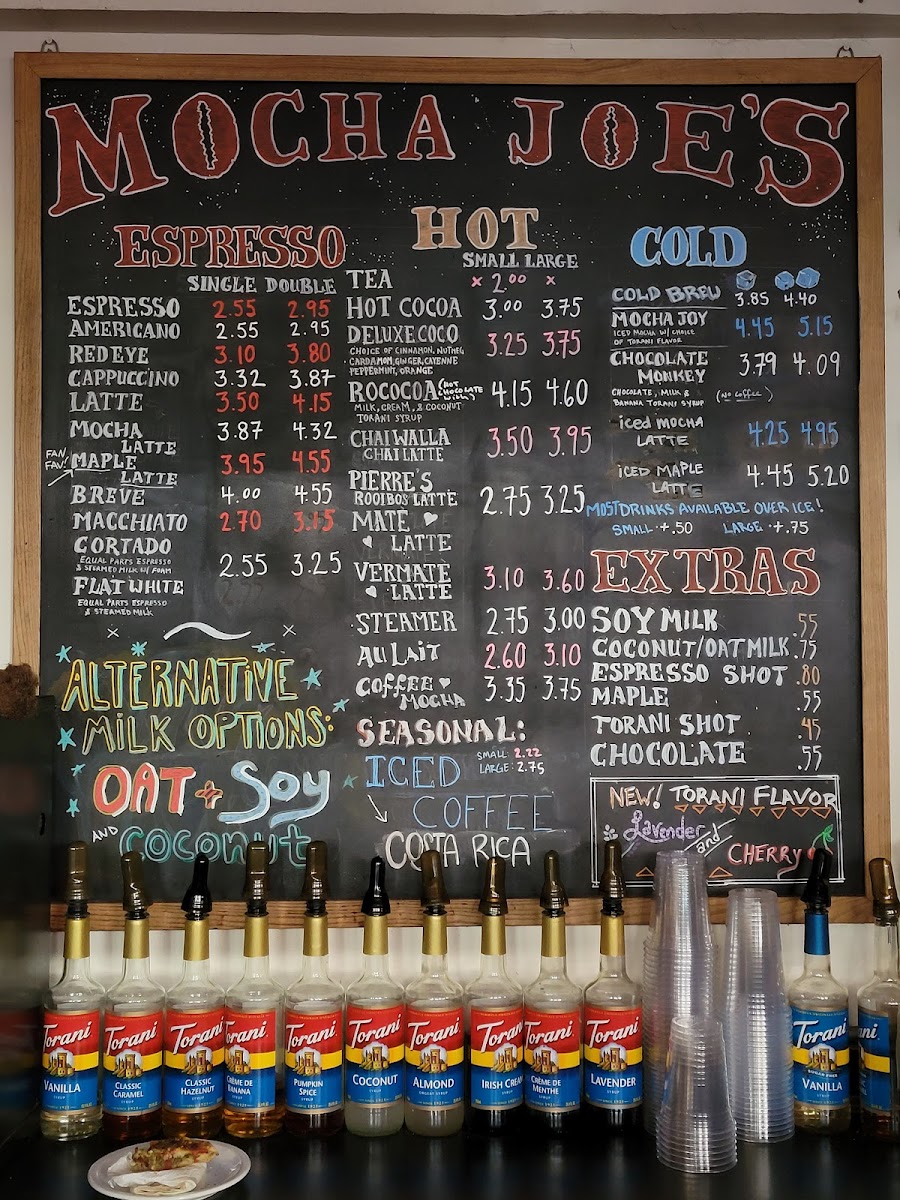 MOCHA JOE'S
ESPRESSO
SINGLE DOUBLE
ESPRESSO 2.55 2.95
AMERICANO 2.55 2.95
RED EYE 3.10 3.80
CAPPUCCINO 3.32 3.87
LATTE 3.50 4.15
MOCHA LATTE 3.87 4.32
FAN FAV!
MAPLE LATTE 3.95 4.55
BREVE 4.00 4.55
MACCHIATO 2.70 3.15
CORTADO
EQUAL PARTS ESPRESSO
& STEAMED MILK W/ FOAM
2.55 3.25
FLAT WHITE
EQUAL PARTS ESPRESSO
& STEAMED MILK
ALTERNATIVE
MILK OPTIONS:
OAT + Soy
AND coconut
HOT
SMALL LARGE
TEA x 2.00 x
HOT COCOA 3.00 3.75
DELUXE COCO 3.25 3.75
CHOICE OF CINNAMON, NUTMEG,
CARDAMOM, GINGER, CAYENNE
PEPPERMINT, ORANGE
ROCOCOA (HOT CHOCOLATE WITH) 4.15 4.60
MILK, CREAM, & COCONUT
TORANI SYRUP
CHAI WALLA
CHAI LATTE 3.50 3.95
PIERRE'S
ROOIBOS LATTE 2.75 3.25
MATE
LATTE
VERMATE
LATTE 3.10 3.60
STEAMER 2.75 3.00
AU LAIT 2.60 3.10
COFFEE
MOCHA 3.35 3.75
SEASONAL:
ICED
SMALL: 2.22
LARGE: 2.75
COFFEE
COSTA RICA
COLD
COLD BREW 3.85 4.40
MOCHA JOY 4.45 5.15
ICED MOCHA W/ CHOICE
OF TORANI FLAVOR
CHOCOLATE
MONKEY 3.79 4.09
CHOCOLATE, MILK &
BANANA TORANI SYRUP (No coffee)
iced mocha
LATTE 4.25 4.95
iCED MAPLE
LATTE 4.45 5.20
MOST DRINKS AVAILABLE OVER ICE!
SMALL · +.50 LARGE · +.75
EXTRAS
SOY MILK .55
COCONUT/OAT MILK .75
ESPRESSO SHOT .80
MAPLE .55
TORANI SHOT .45
CHOCOLATE .55
NEW! TORANI FLAVOR
Lavender and
CHERRY
Torani
VANILLA
SYRUP
Torani
CLASSIC
CARAMEL
SYRUP
Torani
CLASSIC
HAZELNUT
SYRUP
Torani
CRÈME DE
BANANA
SYRUP
Torani
PUMPKIN
SPICE
SYRUP
Torani
COCONUT
SYRUP
Torani
ALMOND
ORGEAT SYRUP
Torani
IRISH CREAM
SYRUP
Torani
CRÈME DE
MENTHE
SYRUP
Torani
LAVENDER
SYRUP
Torani
SUGAR FREE
VANILLA
SYRUP